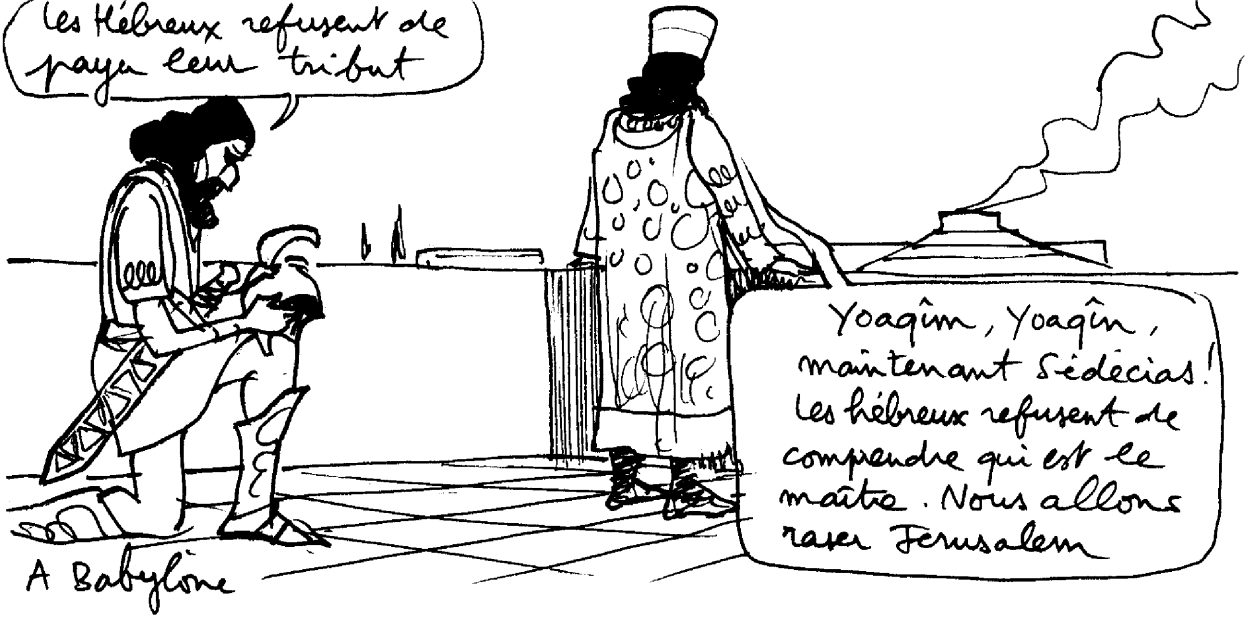 Les Hébreux refusent de
payer leur tribut
Yoaqîm, Yoaqîn,
maintenant Sédécias!
Les hébreux refusent de
comprendre qui est le
maître. Nous allons
raser Jérusalem
A Babylone